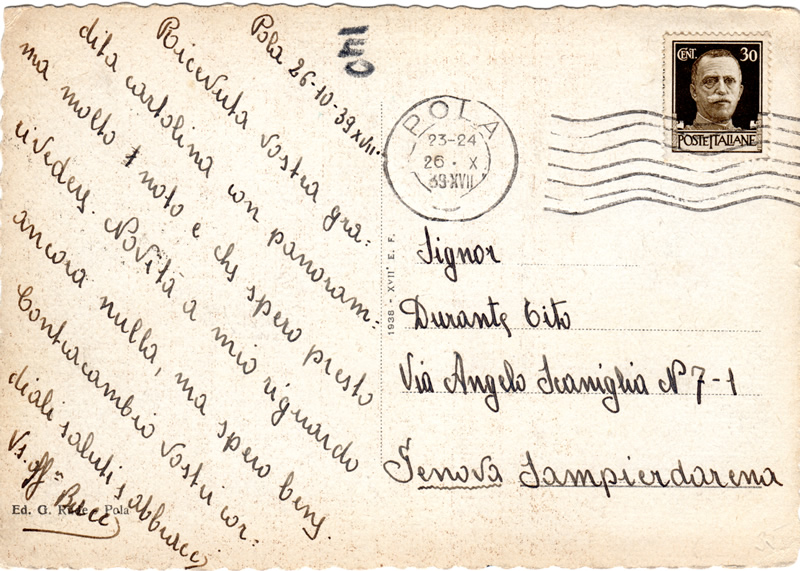 Pola 26-10-39 XVII°
Ricevuta vostra gra=
dita cartolina con panoram=
ma molto noto e che spero presto
rivedere. Novità a mio riguardo
ancora nulla, ma spero bene.
Contracambio vostri cor=
diali saluti e abbracci
Vs. aff°
Ed. G. - Pola
1938 - XVII° E. F.
POLA
23-24
26 · X
39·XVII
CENT. 30
POSTE ITALIANE
Signor
Durante Tito
Via Angelo Scaniglia N° 7-1
Genova Sampierdarena